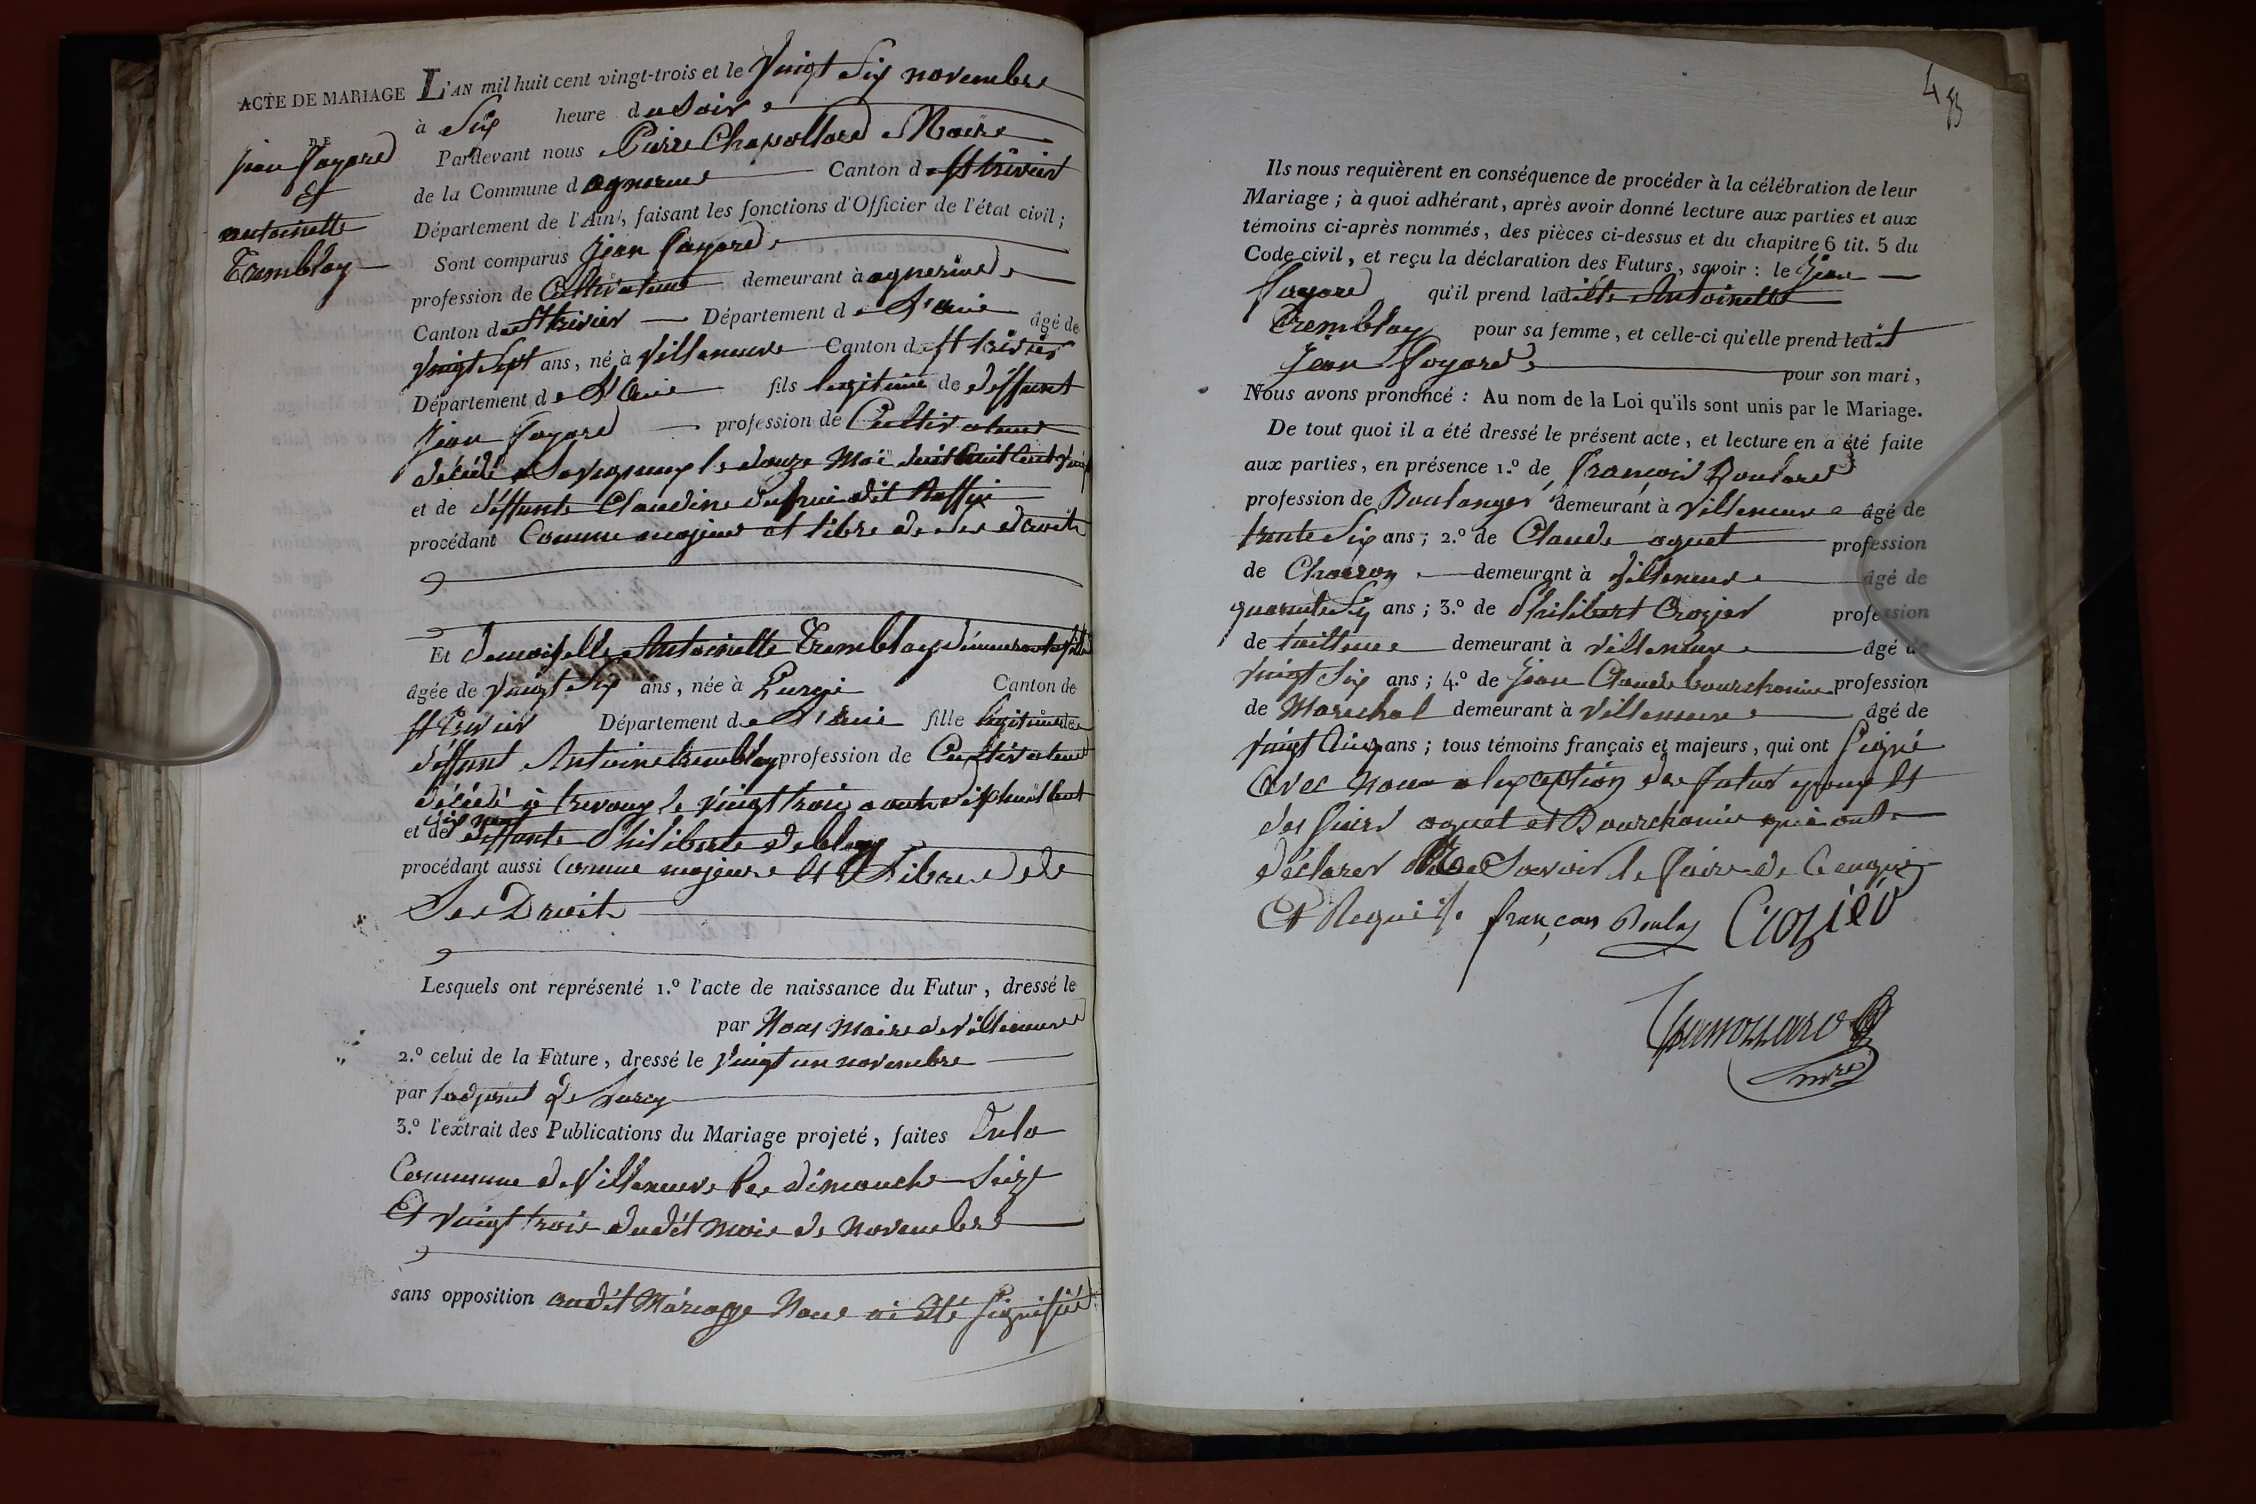 ACTE DE MARIAGE
DE
jean Fayard
Et
antoinette
Tremblay
L'AN mil huit cent vingt-trois et le Vingt Six novembre
à Six heure du Soir
Pardevant nous Pierre Chapollard Maire
de la Commune d agnerins Canton de St trivier
Département de l'Ain, faisant les fonctions d'Officier de l'état civil;
Sont comparus Jean Fayard
profession de Cultivateur demeurant à agnerins
Canton de St trivier Département de L'ain âgé de
Vingt Sept ans, né à Villeneuve Canton de St trivier
Département de L'Ain fils legitime de deffunt
Jean Fayard profession de Cultivateur
décédé a Savigneux le douze Mai
et de deffunte Claudine dit
procédant Comme majeur et libre de ses droits
Et demoiselle Antoinette Tremblay
âgée de Vingt Six ans, née à Lurcy Canton de
St Trivier Département de L'Ain fille legitime de
deffunt Antoine tremblay profession de Cultivateur
décédé à trevoux le Vingt trois dix huit Cent
dix neuf
et de deffunte Philiberte
procédant aussi Comme majeure et Libre de
Ses Droits
Lesquels ont représenté 1.º l'acte de naissance du Futur, dressé le
par Nous Maire de Villeneuve
2.º celui de la Future, dressé le Vingt un novembre
par l'adjoint de Lurcy
3.º l'extrait des Publications du Mariage projeté, faites En la
Commune de Villeneuve les dimanche Seize
Et Vingt trois dudit mois de Novembre
sans opposition audit Mariage Nous ai été Signifié
483
Ils nous requièrent en conséquence de procéder à la célébration de leur
Mariage; à quoi adhérant, après avoir donné lecture aux parties et aux
témoins ci-après nommés, des pièces ci-dessus et du chapitre 6 tit. 5 du
Code civil, et reçu la déclaration des Futurs, savoir: le Jean
Fayard qu'il prend ladite Antoinette
Tremblay pour sa femme, et celle-ci qu'elle prend ledit
Jean Fayard pour son mari,
Nous avons prononcé: Au nom de la Loi qu'ils sont unis par le Mariage.
De tout quoi il a été dressé le présent acte, et lecture en a été faite
aux parties, en présence 1.º de François
profession de Boulanger demeurant à Villeneuve âgé de
trente Six ans; 2.º de Claude aguet profession
de Charron demeurant à Villeneuve âgé de
quarante Six ans; 3.º de Philibert Crozier profession
de tailleur demeurant à Villeneuve âgé de
Vingt Six ans; 4.º de Jean Claude bourchanin profession
de Marechal demeurant à Villeneuve âgé de
Vingt Cinq ans; tous témoins français et majeurs, qui ont Signé
avec Nous a lexception de futur epoux Et
des Sieurs aguet et Bourchanin qui ont
déclarer Ne Savoir le faire de Ce enquis
Et Requis. françois Crozier
mre